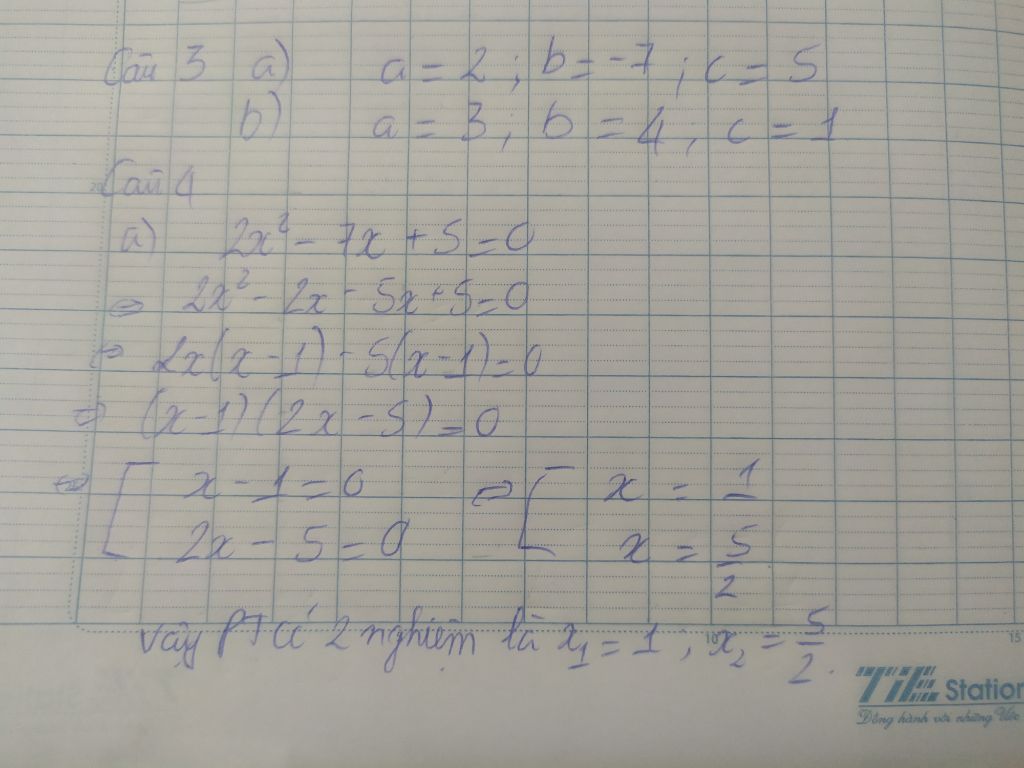 Câu 3 a) a = 2 ; b = -7 ; c = 5
b) a = 3 ; b = 4 ; c = 1
Câu 4
a) 2x² - 7x + 5 = 0
⇔ 2x² - 2x - 5x + 5 = 0
⇔ 2x(x - 1) - 5(x - 1) = 0
⇔ (x - 1)(2x - 5) = 0
⇔ [ x - 1 = 0 ⇔ [ x = 1
2x - 5 = 0 x = 5/2
Vậy PT có 2 nghiệm là x₁ = 1 ; x₂ = 5/2.
10 15
TiE Station
Đồng hành với những Ước